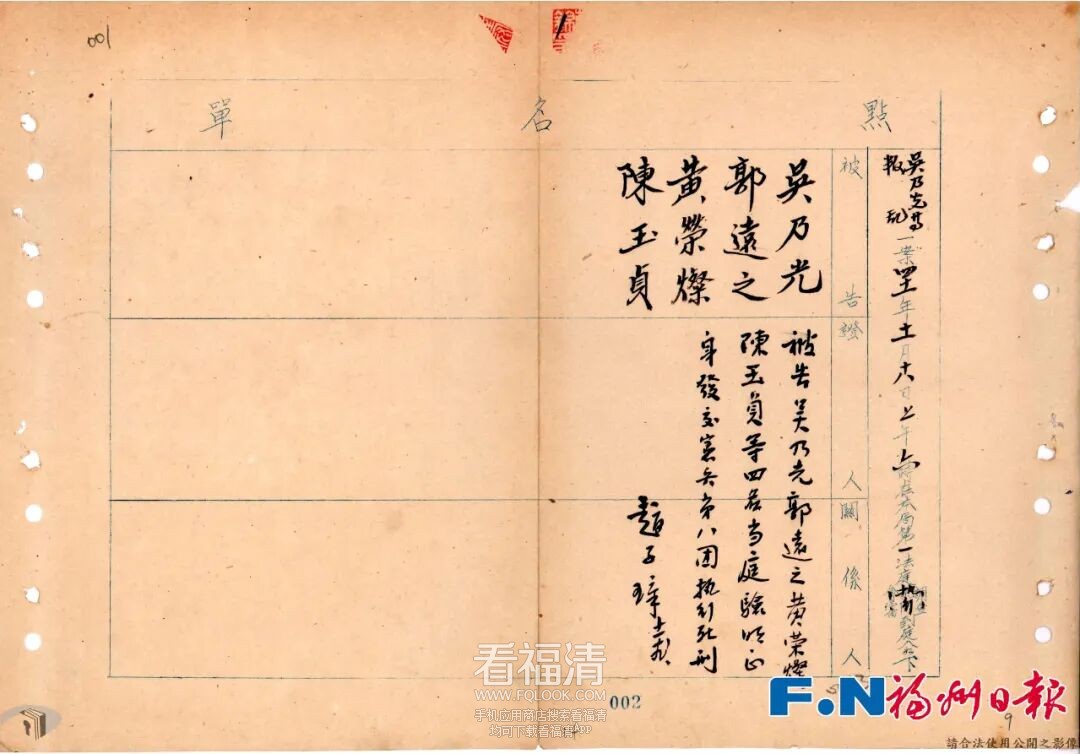 001
點名單
吳乃光等
叛亂一案四十一年十一月十八日上午六時在本局第一法庭執行到庭人如下
被告
證人
關係人
吳乃光
郭遠之
黃榮燦
陳玉貞
被告吴乃光郭遠之黄荣燦
陳玉貞等四名当庭驗明正
身發交憲兵第八团执行死刑
趙子璋
002
看福清
WWW.FQLOOK.COM
手机应用商店搜索看福清
均可下载看福清APP
F.N福州日報
9
請合法使用公開之影像